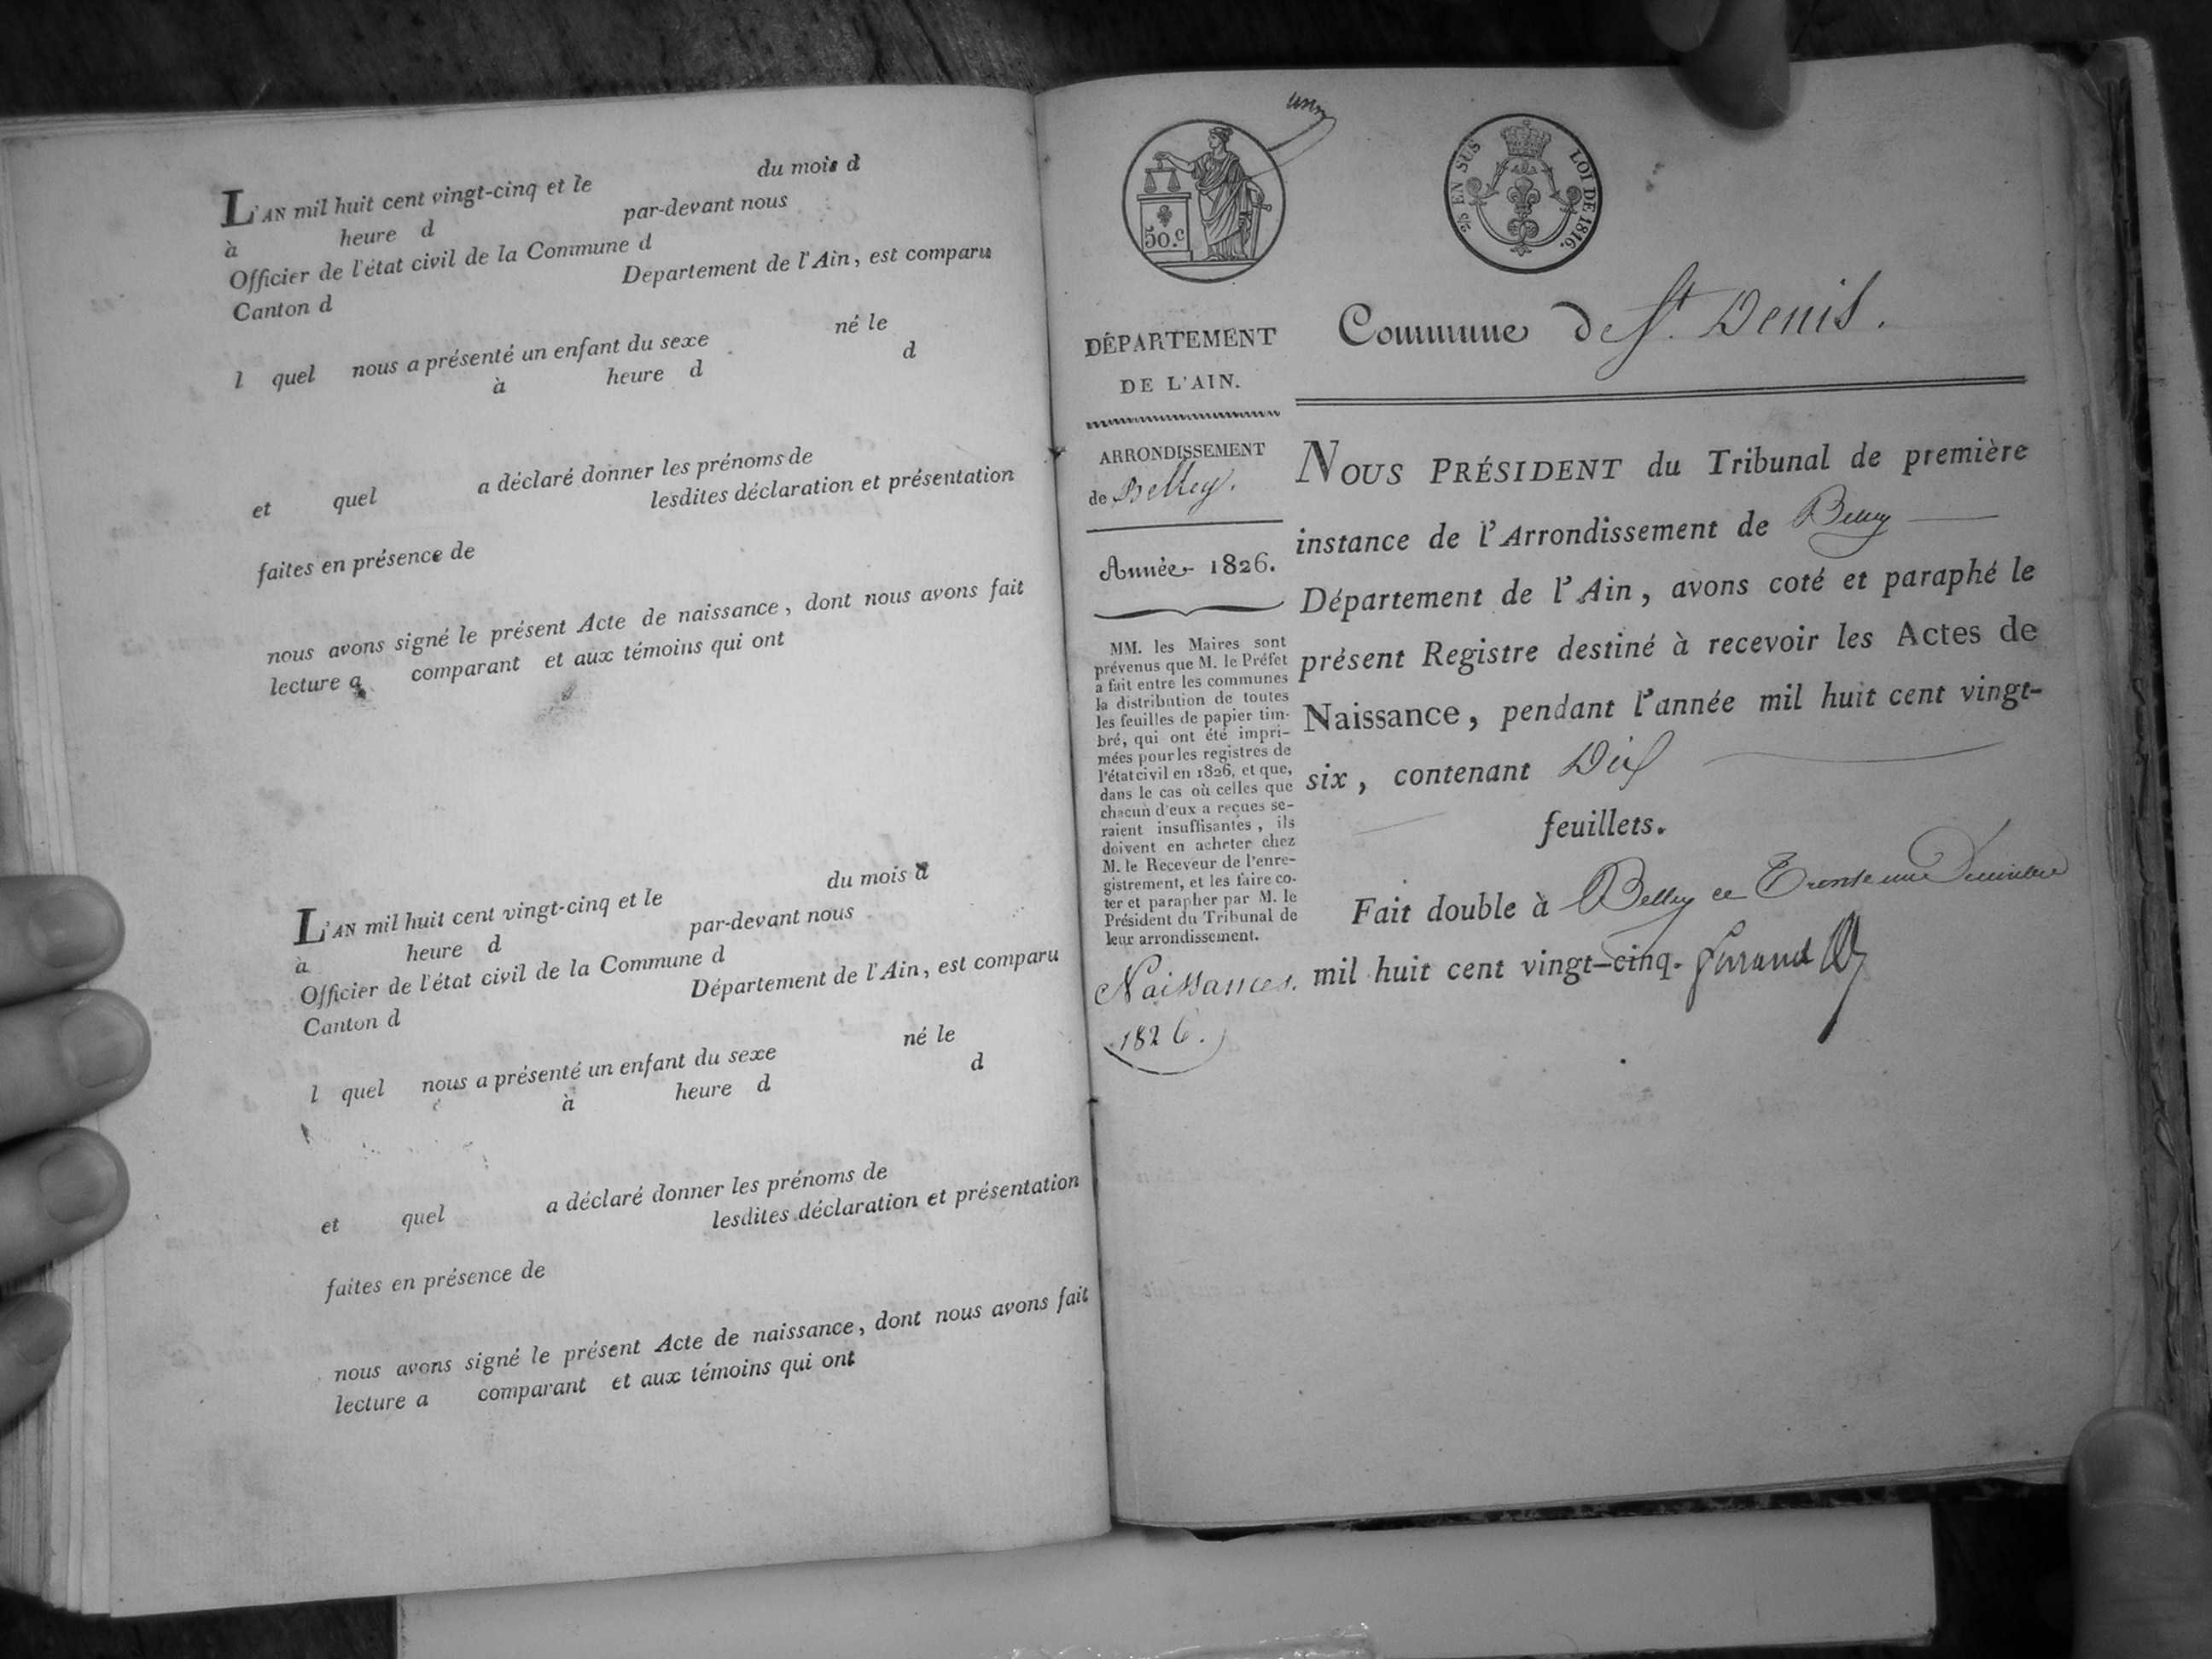 L'AN mil huit cent vingt-cinq et le du mois d
à heure d par-devant nous
Officier de l'état civil de la Commune d
Canton d Département de l'Ain, est comparu
né le
l quel nous a présenté un enfant du sexe d
à heure d
a déclaré donner les prénoms de
et quel lesdites déclaration et présentation
faites en présence de
nous avons signé le présent Acte de naissance, dont nous avons fait
lecture a comparant et aux témoins qui ont
L'AN mil huit cent vingt-cinq et le du mois d
à heure d par-devant nous
Officier de l'état civil de la Commune d
Canton d Département de l'Ain, est comparu
né le
l quel nous a présenté un enfant du sexe d
à heure d
a déclaré donner les prénoms de
et quel lesdites déclaration et présentation
faites en présence de
nous avons signé le présent Acte de naissance, dont nous avons fait
lecture a comparant et aux témoins qui ont
un
50.c
2/5 EN SUS LOI DE 1816.
DÉPARTEMENT
DE L'AIN.
ARRONDISSEMENT
de Belley.
Année 1826.
MM. les Maires sont
prévenus que M. le Préfet
a fait entre les communes
la distribution de toutes
les feuilles de papier tim-
bré, qui ont été impri-
mées pour les registres de
l'état civil en 1826, et que,
dans le cas où celles que
chacun d'eux a reçues se-
raient insuffisantes, ils
doivent en acheter chez
M. le Receveur de l'enre-
gistrement, et les faire co-
ter et parapher par M. le
Président du Tribunal de
leur arrondissement.
Naissances.
1826.
Commune de St. Denis.
NOUS PRÉSIDENT du Tribunal de première
instance de l'Arrondissement de Belley
Département de l'Ain, avons coté et paraphé le
présent Registre destiné à recevoir les Actes de
Naissance, pendant l'année mil huit cent vingt-
six, contenant Dix
feuillets.
Fait double à Belley ce Trente un Décembre
mil huit cent vingt-cinq.